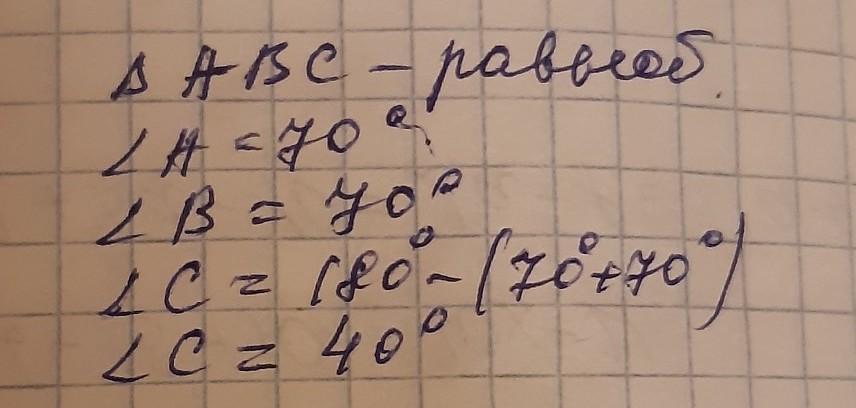 Δ ABC – равноб.
∠A = 70°
∠B = 70°
∠C = 180° – (70° + 70°)
∠C = 40°